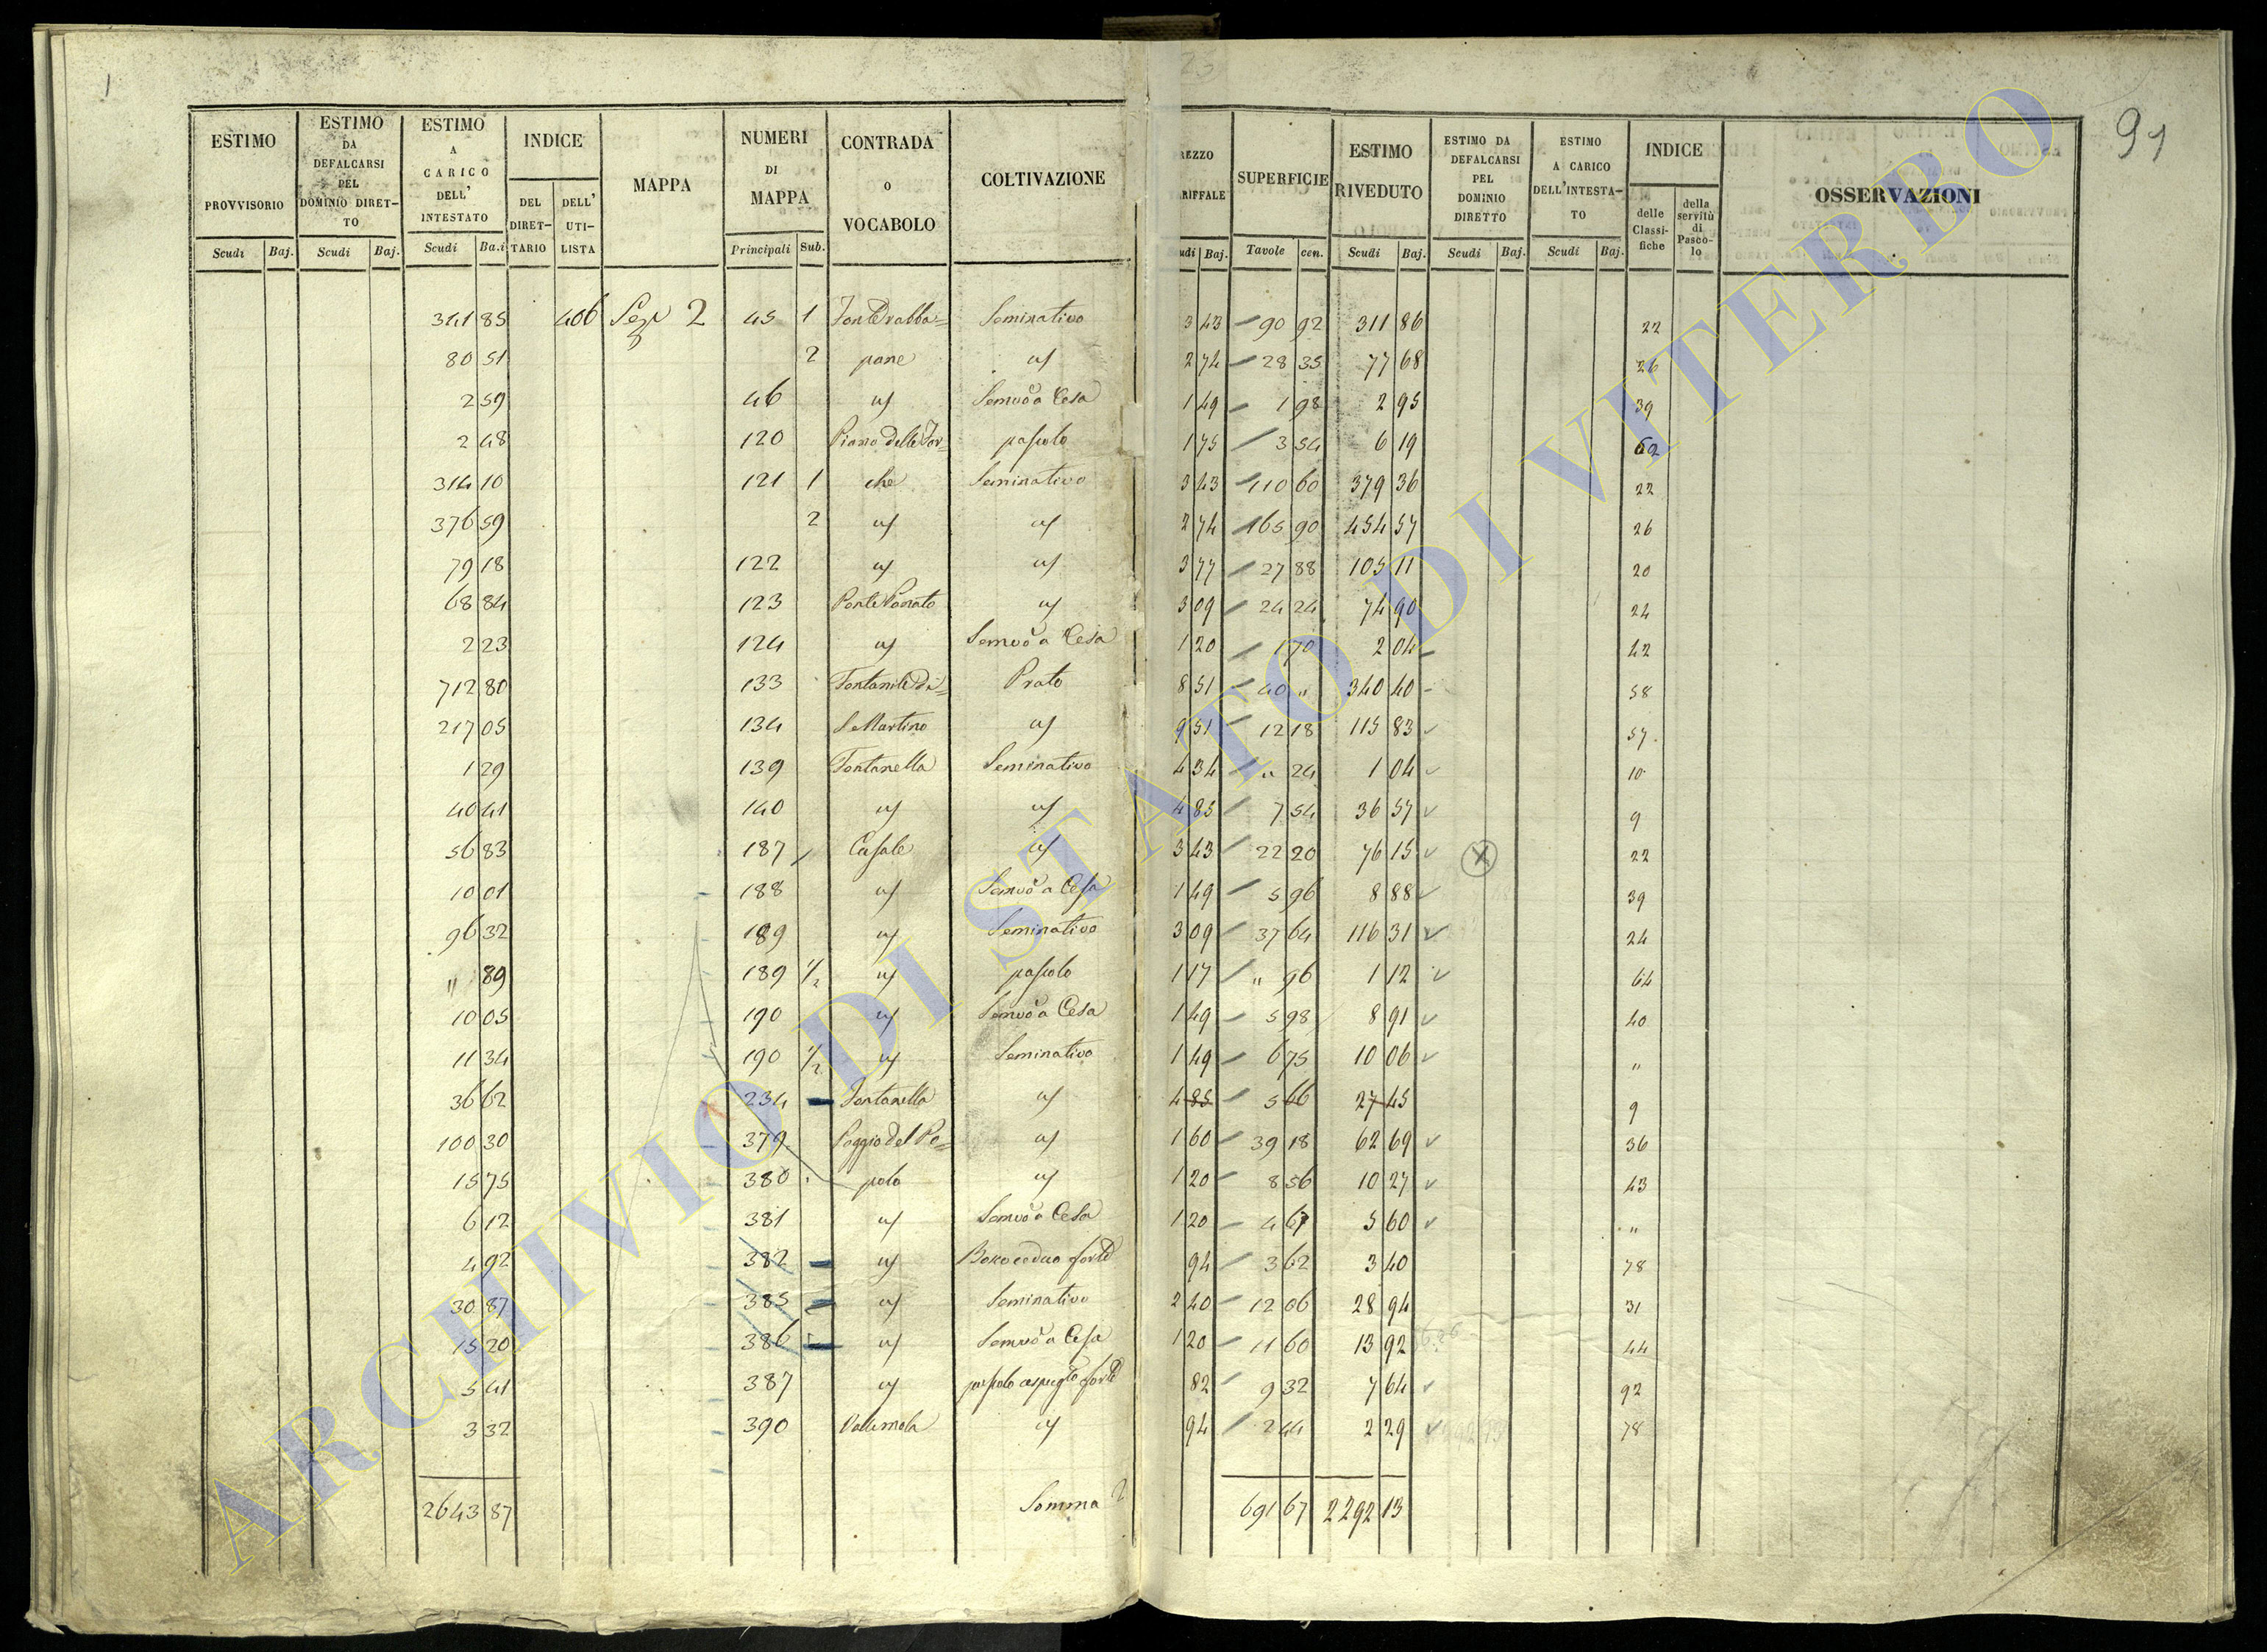 1
91
ESTIMO PROVVISORIO Scudi Baj.
ESTIMO DA DEFALCARSI DEL DOMINIO DIRET-TO Scudi Baj.
ESTIMO A CARICO DELL' INTESTATO Scudi Ba.i
INDICE DEL DIRET-TARIO DELL' UTI-LISTA
MAPPA
NUMERI DI MAPPA Principali Sub.
CONTRADA O VOCABOLO
COLTIVAZIONE
REZZO RIFFALE udi Baj.
SUPERFICIE Tavole cen.
ESTIMO RIVEDUTO Scudi Baj.
ESTIMO DA DEFALCARSI PEL DOMINIO DIRETTO Scudi Baj.
ESTIMO A CARICO DELL'INTESTA-TO Scudi Baj.
INDICE delle Classi-fiche della servitù di Pasco-lo
OSSERVAZIONI
341 85 406 Sez 2 45 1 Seminativo 3 43 90 92 311 86 22
80 51 2 pane id 2 74 28 35 77 68 26
2 59 46 id Semvo a Cesa 1 49 1 98 2 95 39
2 48 120 Piano delle For= pascolo 1 75 3 54 6 19 62
314 10 121 1 che Seminativo 3 43 110 60 379 36 22
376 59 2 id id 2 74 165 90 454 57 26
79 18 122 id id 3 77 27 88 105 11 20
68 84 123 id 3 09 24 24 74 90 24
2 23 124 id Semvo a Cesa 1 20 1 70 2 04 42
712 80 133 Prato 8 51 40 " 340 40 58
217 05 134 S Martino id 9 51 12 18 115 83 57
1 29 139 Fontanella Seminativo 4 34 " 24 1 04 10
40 41 140 id id 4 85 7 54 36 57 9
56 83 187 Casale id 3 43 22 20 76 15 22
10 01 188 id Semvo a Cesa 1 49 5 96 8 88 39
96 32 189 id Seminativo 3 09 37 64 116 31 24
" 89 189 1/2 id pascolo 1 17 " 96 1 12 64
10 05 190 id Semvo a Cesa 1 49 5 98 8 91 40
11 34 190 1/2 id Seminativo 1 49 6 75 10 06 "
36 62 234 Fontanella id 4 85 5 66 27 45 9
100 30 379 Poggio del Po= id 1 60 39 18 62 69 36
15 75 380 polo id 1 20 8 56 10 27 43
6 12 381 id Semvo a Cesa 1 20 4 67 5 60 "
4 92 382 id Bosco ceduo forte 94 3 62 3 40 78
30 87 385 id Seminativo 2 40 12 06 28 94 31
15 20 386 id Semvo a Cesa 1 20 11 60 13 92 44
5 41 387 id pascolo cespugto forte 82 9 32 7 64 92
3 32 390 Vallemola id 94 2 44 2 29 78
2643 87 Somma 691 67 2292 13
ARCHIVIO DI STATO DI VITERBO